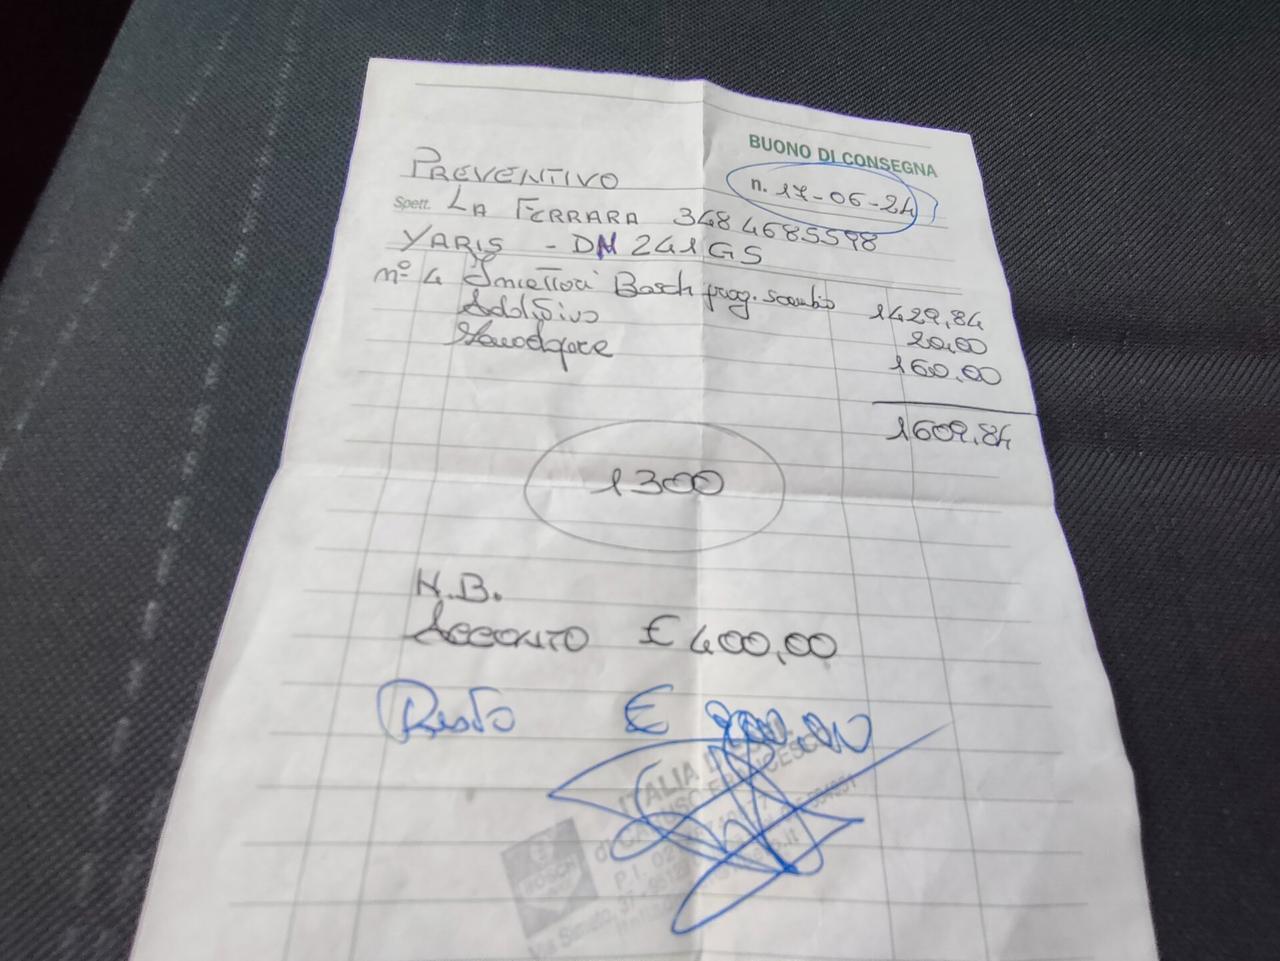 BUONO DI CONSEGNA
PREVENTIVO
n. 17-06-24
Spett. LA FERRARA 3484685598
YARIS - DN 241GS
n° 4 Iniettori Bosch prog. scambio 1429,84
Additivo 20,00
Manodopera 160,00
1609,84
1300
N.B.
Acconto € 400,00
Resto € 900,00
ITALIA
di CARUSO FRANCESCO
BOSCH
P.I.